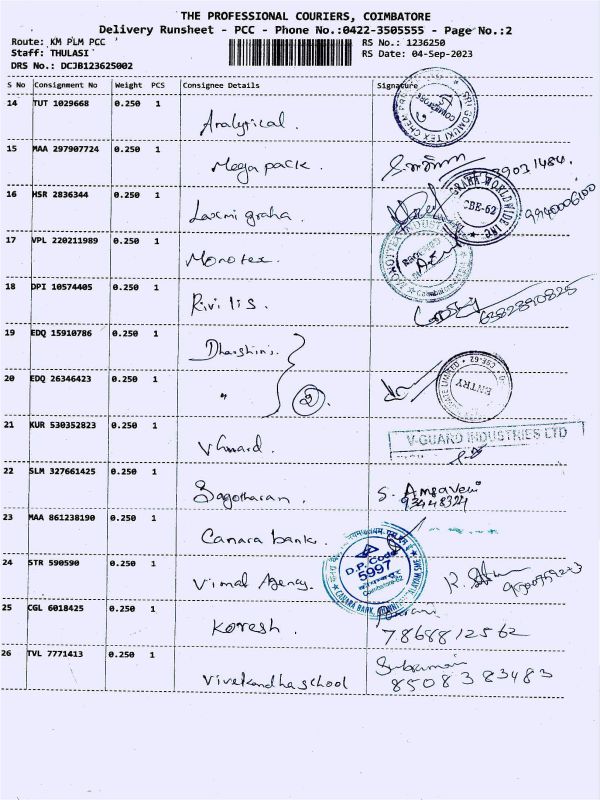 THE PROFESSIONAL COURIERS, COIMBATORE
Delivery Runsheet - PCC - Phone No.:0422-3505555 - Page No.:2
Route: KM PLM PCC RS No.: 1236250
Staff: THULASI RS Date: 04-Sep-2023
DRS No.: DCJB123625002
S No Consignment No Weight PCS Consignee Details Signature
14 TUT 1029668 0.250 1 Analytical.
15 MAA 297907724 0.250 1 Mega pack.
16 HSR 2836344 0.250 1 Laxmi graha. GRAHA WORLDWIDE INC CBE-62 9940006100
17 VPL 220211989 0.250 1 Monotex. RECEIVED
18 DPI 10574405 0.250 1 Rivilis. 6382890825
19 EDQ 15910786 0.250 1 Dharshini.
20 EDQ 26346423 0.250 1 " 2 ENTRY CBE-62
21 KUR 530352823 0.250 1 V-GUARD INDUSTRIES LTD
Vguard.
22 SLM 327661425 0.250 1 S. Amsaveni
93448324
23 MAA 861238190 0.250 1 Canara bank.
D.P. Code
5997
Coimbatore-62
24 STR 590590 0.250 1 Vimal Agency.
25 CGL 6018425 0.250 1 Koresh. 7868812562
26 TVL 7771413 0.250 1 Vivekandhaschool Subramani
8508383483